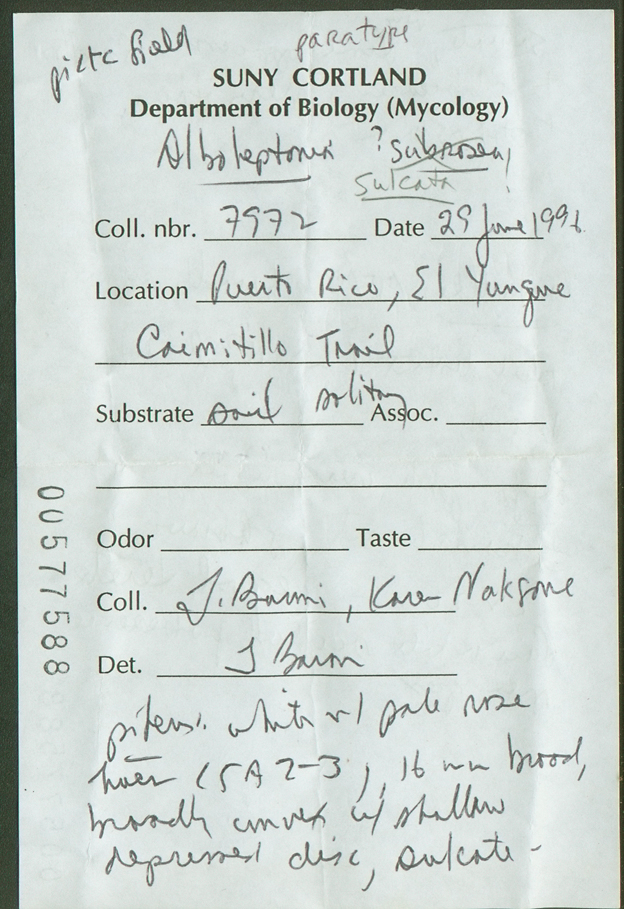 picte field
paratype
SUNY CORTLAND
Department of Biology (Mycology)
Alboleptonia ? subrosea
sulcata !
Coll. nbr. 7972 Date 29 June 1996
Location Puerto Rico, El Yunque
Caimitillo Trail
Substrate soil solitary Assoc.
Odor Taste
Coll. T. Baroni, Karen Nakasone
Det. T Baroni
00577588
pileus: white w/ pale rose
hues (5A2-3), 16 mm broad,
broadly convex w/ shallow
depressed disc, sulcate -